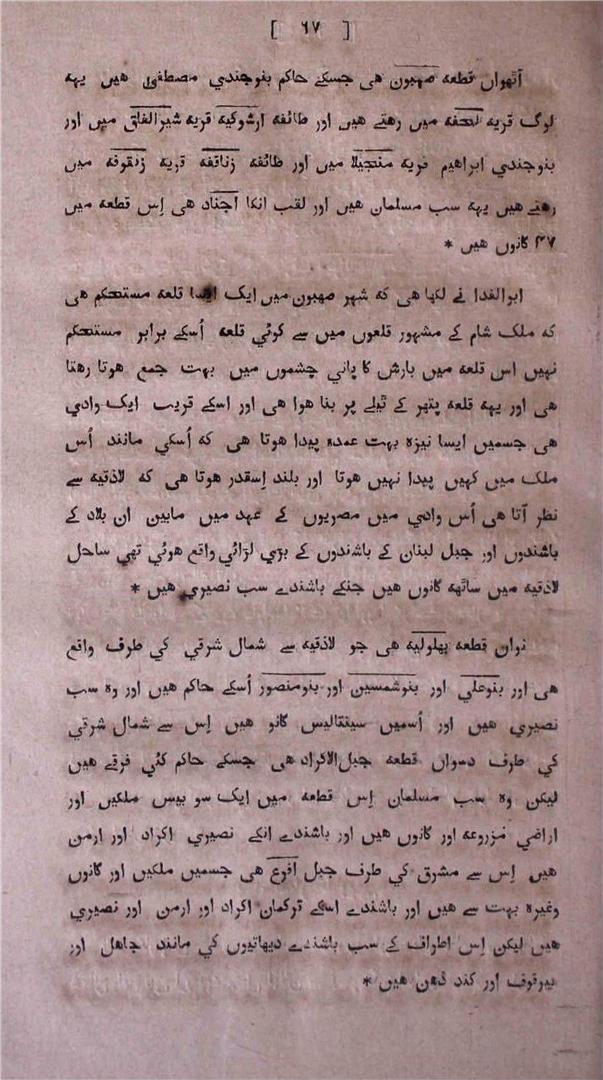 [ ٦٧ ]
آتھواں قطعہ صهیون هی جسکے حاکم بنوجندي مصطفی هیں یہہ
لوگ قریہ التحفہ میں رهتے هیں اور طائفہ ارشوکیہ قریہ شیرالفاق میں اور
بنوجندي ابراهیم قریہ منتجیلا میں اور طائفہ زناقفہ قریہ زنقوفہ میں
رهتے هیں یہہ سب مسلمان هیں اور لقب انکا اجناد هی اِس قطعہ میں
۴۷ گانوں هیں *
ابوالفدا نے لکھا هی کہ شہر صهیون میں ایک ایسا قلعہ مستحکم هی
کہ ملک شام کے مشہور قلعوں میں سے کوئي قلعہ اُسکے برابر مستحکم
نہیں اس قلعہ میں بارش کا پاني چشموں میں بہت جمع هوتا رهتا
هی اور یہہ قلعہ پتھر کے ٹیلے پر بنا هوا هی اور اسکے قریب ایک وادي
هی جسمیں ایسا نیزہ بہت عمدہ پیدا هوتا هی کہ اُسکي مانند اُس
ملک میں کہیں پیدا نہیں هوتا اور بلند اِسقدر هوتا هی کہ لاذقیہ سے
نظر آتا هی اُس وادي میں مصریوں کے عہد میں مابین ان بلاد کے
باشندوں اور جبل لبنان کے باشندوں کے بڑي لڑائي واقع هوئي تھي ساحل
لاذقیہ میں ساٹھہ گانوں هیں جنکے باشندے سب نصیري هیں *
نواں قطعہ بهلولیہ هی جو لاذقیہ سے شمال شرقي کي طرف واقع
هی اور بنوعلي اور بنوشمسین اور بنومنصور اُسکے حاکم هیں اور وہ سب
نصیري هیں اور اُسمیں سینتالیس گانو هیں اِس سے شمال شرقي
کي طرف دسواں قطعہ جبل الاکراد هی جسکے حاکم کئي فرقے هیں
لیکن وہ سب مسلمان اِس قطعہ میں ایک سو بیس ملکیں اور
اراضي مزروعہ اور گانوں هیں اور باشندے انکے نصیري اکراد اور ارمن
هیں اِس سے مشرق کي طرف جبل اقرع هی جسمیں ملکیں اور گانوں
وغیرہ بہت سے هیں اور باشندے اسکے ترکمان اکراد اور ارمن اور نصیري
هیں لیکن اِس اطراف کے سب باشندے دیہاتیوں کي مانند جاهل اور
بیوقوف اور کند ذهن هیں *